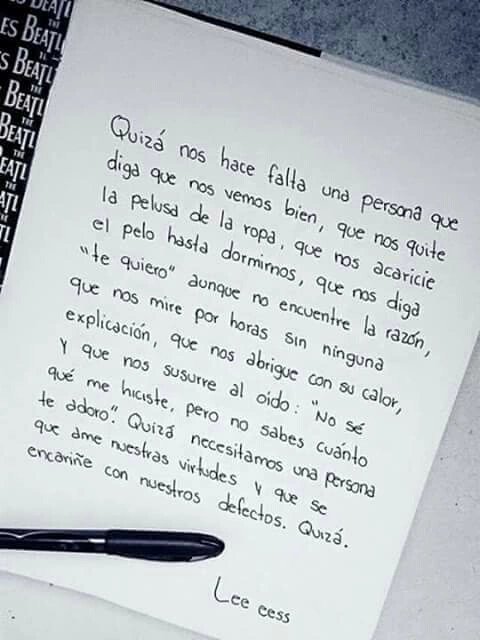 BEATL
ES BEATL
THE
S BEATL
THE
BEATL
THE
BEATL
THE
EATL
THE
ATL
THE
TL
Quizá nos hace falta una persona que
diga que nos vemos bien, que nos quite
la pelusa de la ropa, que nos acaricie
el pelo hasta dormirnos, que nos diga
"te quiero" aunque no encuentre la razón,
que nos mire por horas sin ninguna
explicación, que nos abrigue con su calor,
Y que nos susurre al oido: "No sé
qué me hiciste, pero no sabes cuánto
te adoro". Quizá necesitamos una persona
que ame nuestras virtudes y que se
encariñe con nuestros defectos. Quizá.
Lee eess